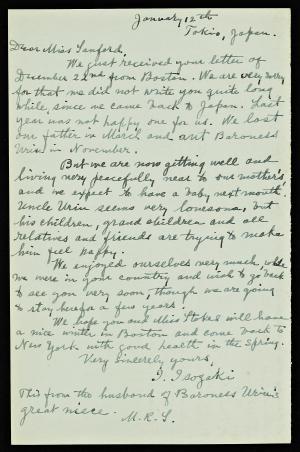 January 12th
Tokio, Japan.
Dear Miss Sanford,
We just received your letter of
December 22nd from Boston. We are very very
for that we did not write you quite long
while, since we came back to Japan. Last
year was not happy one for us. We lost
our father in March and ant Baroness
Uriu in November.
But we are now getting well and
living very peacefully near to our mother's
and we expect to have a baby next month.
Uncle Uriu seems very lonesome, but
his children, grand children and all
relatives and friends are trying to make
him feel happy.
We enjoyed ourselves very much, while
we were in your country and wish to go back
to see you very soon, though we are going
to stay here for a few years.
We hope you and Miss Stokes will have
a nice winter in Boston and come back to
New York with good health in the Spring.
Very Sincerely yours,
I. Isogaki
This from the husband of Baroness Uriu's
great niece.
M.R.S.